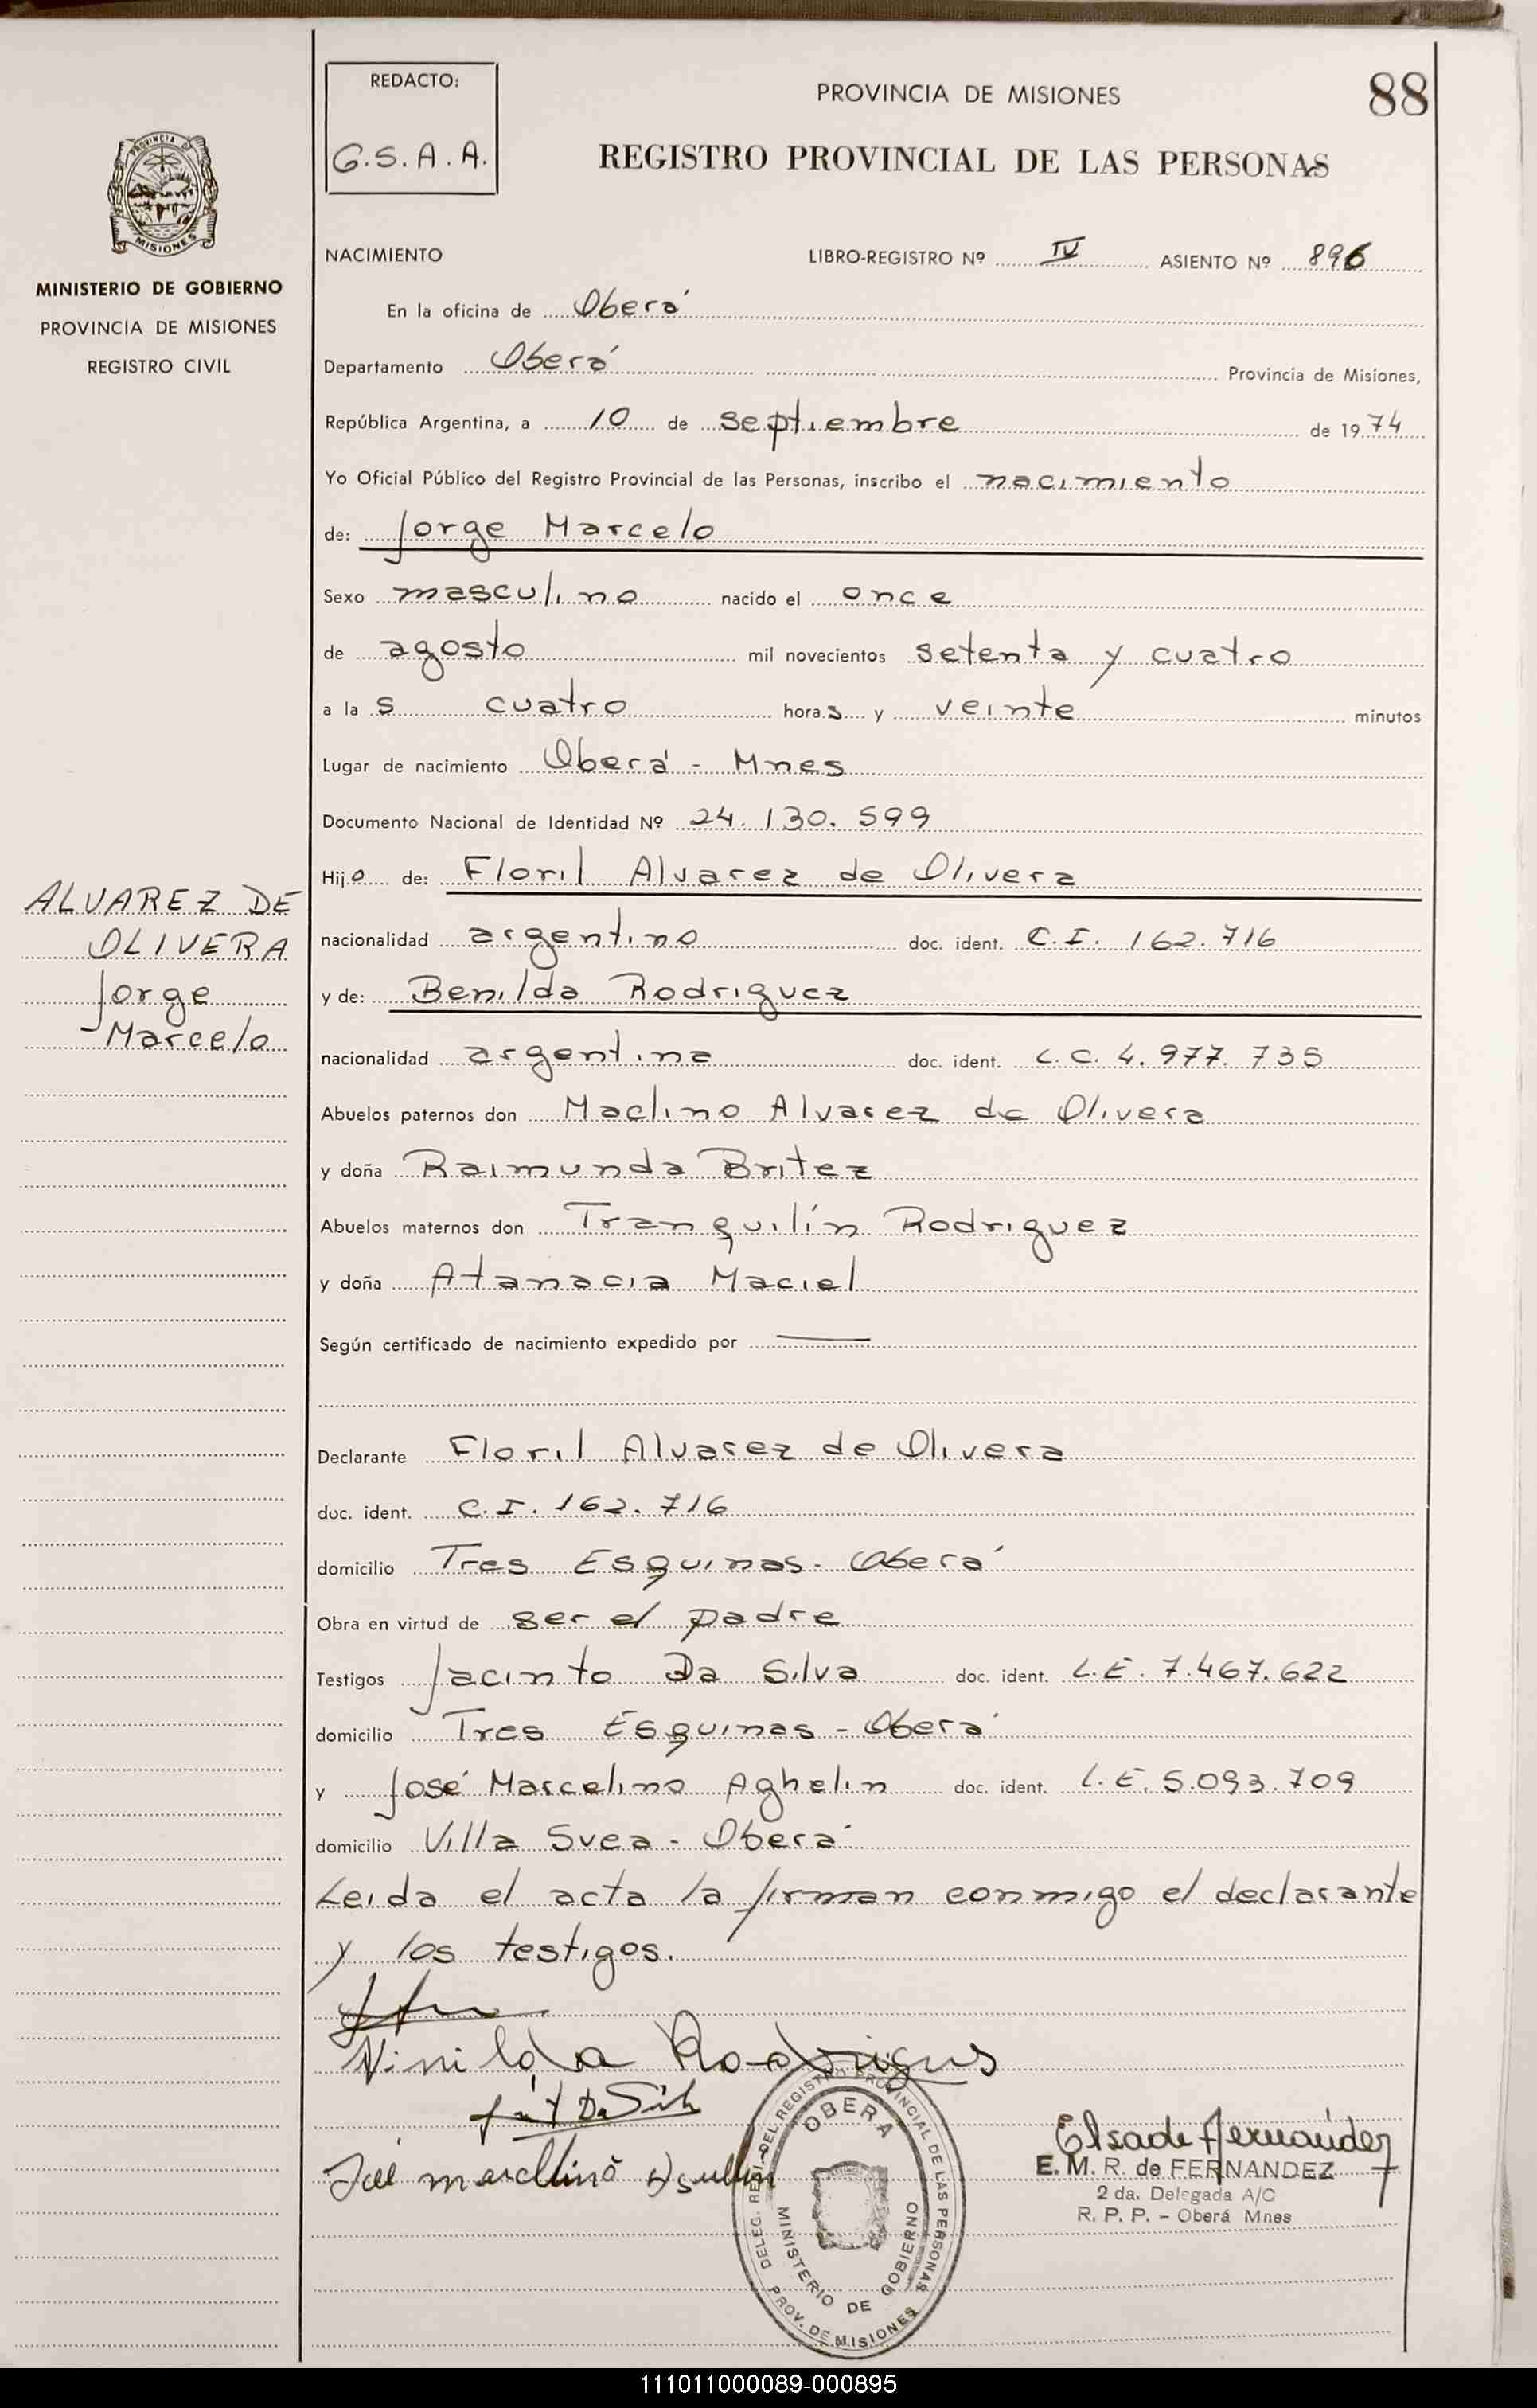 REDACTO:
G.S.A.A.
PROVINCIA DE MISIONES
88
REGISTRO PROVINCIAL DE LAS PERSONAS
PROVINCIA DE
MISIONES
MINISTERIO DE GOBIERNO
PROVINCIA DE MISIONES
REGISTRO CIVIL
NACIMIENTO LIBRO-REGISTRO Nº IV ASIENTO Nº 896
En la oficina de Oberá
Departamento Oberá Provincia de Misiones,
República Argentina, a 10 de septiembre de 1974
Yo Oficial Público del Registro Provincial de las Personas, inscribo el nacimiento
de: Jorge Marcelo
Sexo masculino nacido el once
de agosto mil novecientos setenta y cuatro
a las cuatro horas y veinte minutos
Lugar de nacimiento Oberá - Mnes
Documento Nacional de Identidad Nº 24.130.599
Hijo de: Floril Alvarez de Olivera
nacionalidad argentino doc. ident. C.I. 162.716
y de: Benilda Rodriguez
nacionalidad argentina doc. ident. L.C. 4.977.735
ALVAREZ DE
OLIVERA
Jorge
Marcelo
Abuelos paternos don Maclino Alvarez de Olivera
y doña Raimunda Britez
Abuelos maternos don Tranquilín Rodriguez
y doña Atanacia Maciel
Según certificado de nacimiento expedido por
Declarante Floril Alvarez de Olivera
doc. ident. C.I. 162.716
domicilio Tres Esquinas - Oberá
Obra en virtud de ser el padre
Testigos Jacinto Da Silva doc. ident. L.E. 7.467.622
domicilio Tres Esquinas - Oberá
y José Marcelino Aghelin doc. ident. L.E. 5.093.709
domicilio Villa Svea - Oberá
Leida el acta la firman conmigo el declarante
y los testigos.
Ninilda Rodrigus
Da Silv
Elsa de Fernández
E. M. R. de FERNANDEZ
2 da. Delegada A/C
R. P. P. - Oberá Mnes
DEL REGISTRO PROVINCIAL DE LAS PERSONAS
OBERA
MINISTERIO DE GOBIERNO
PROV. DE MISIONES
111011000089-000895